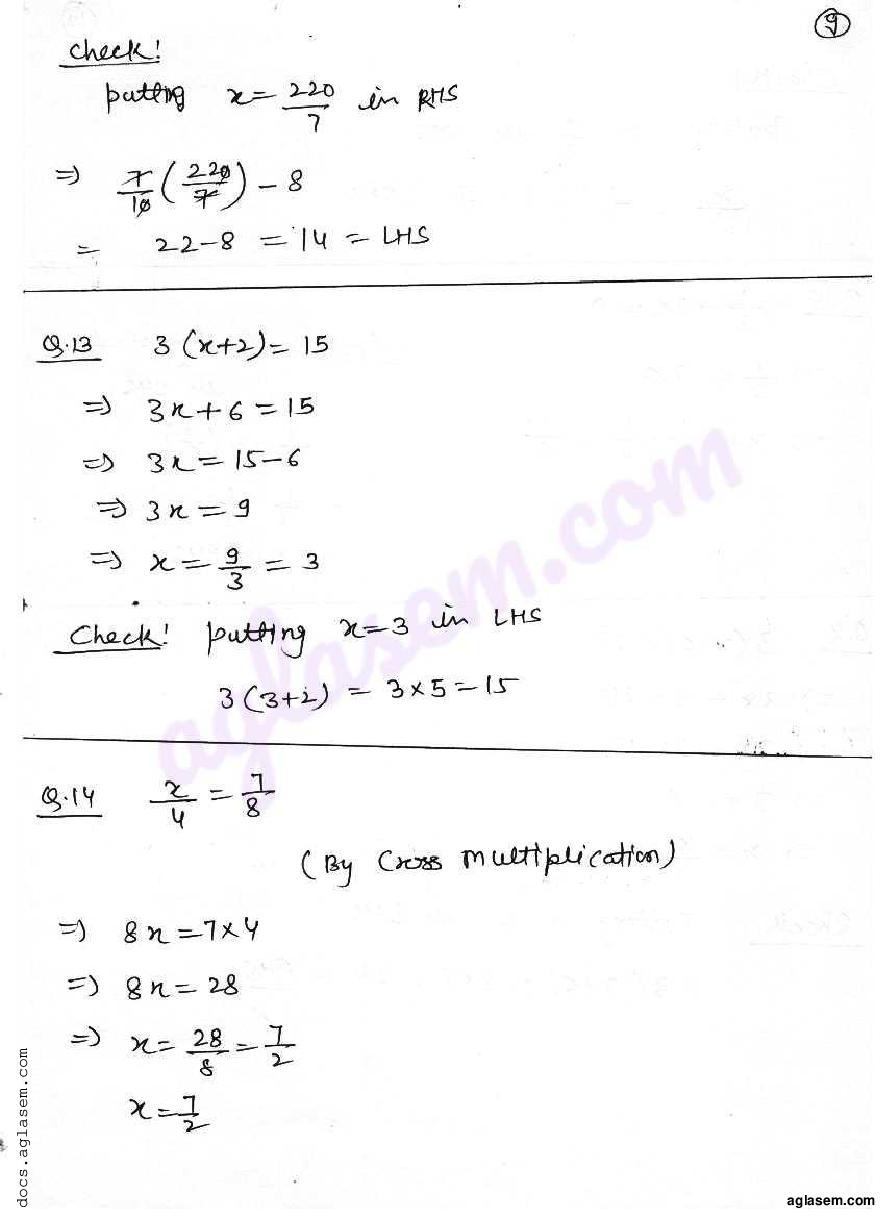 9
Check!
putting x = 220/7 in RHS
⇒ 7/10 (220/7) - 8
= 22-8 = 14 = LHS
Q.13 3(x+2) = 15
⇒ 3x + 6 = 15
⇒ 3x = 15-6
⇒ 3x = 9
⇒ x = 9/3 = 3
Check! putting x=3 in LHS
3(3+2) = 3×5 = 15
Q.14 x/4 = 7/8
(By Cross multiplication)
⇒ 8x = 7×4
⇒ 8x = 28
⇒ x = 28/8 = 7/2
x = 7/2
aglasem.com
docs.aglasem.com
aglasem.com